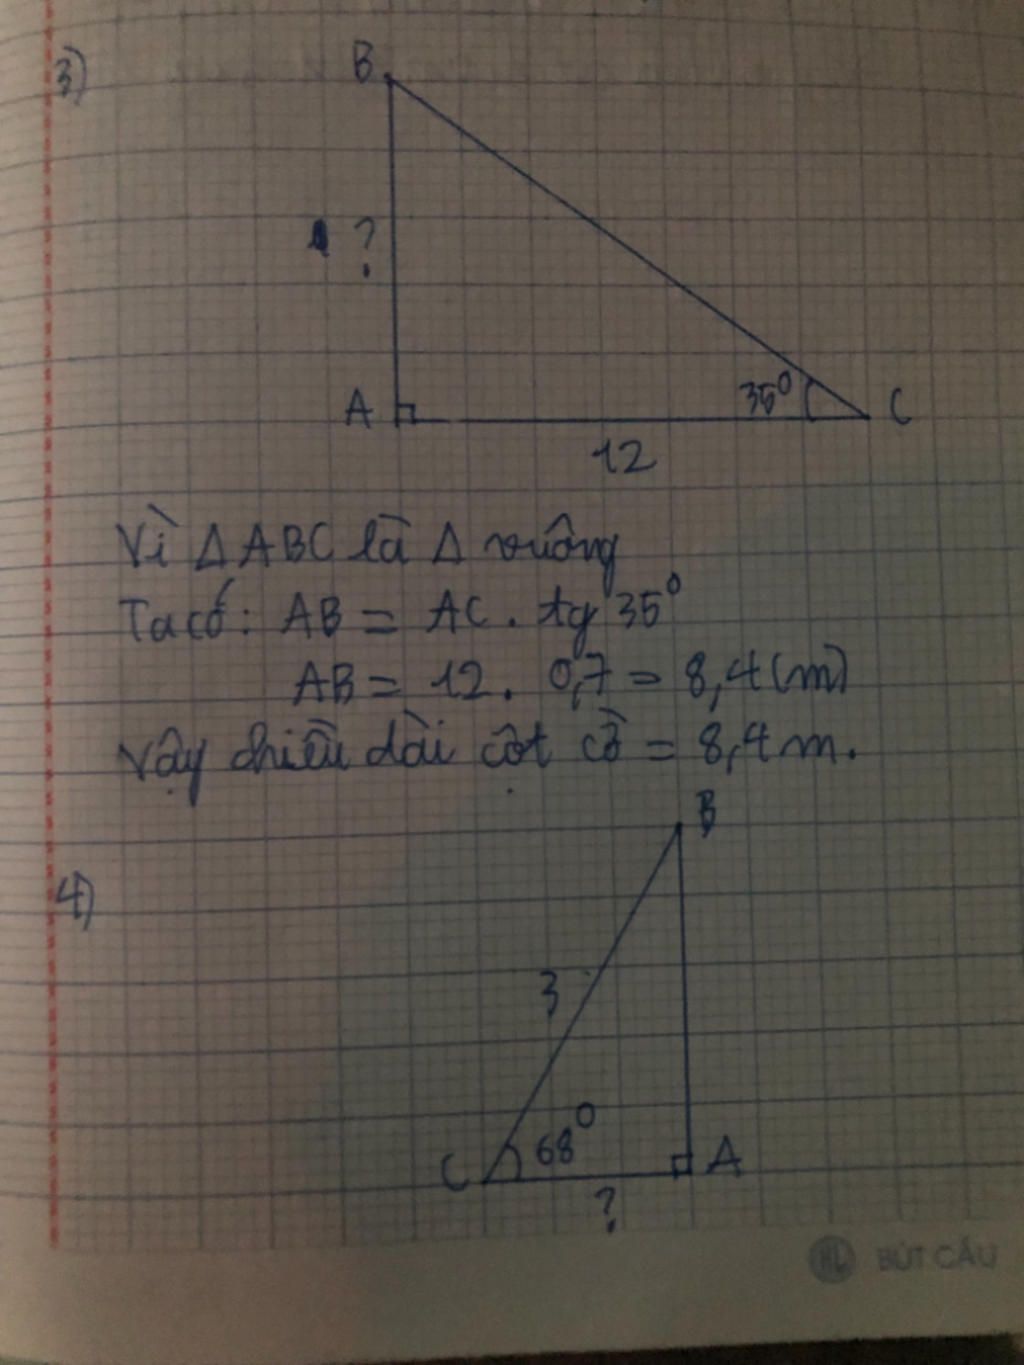 3)
B
?
A
35° C
12
Vì Δ ABC là Δ vuông
Ta có: AB = AC . tg 35°
AB = 12 . 0,7 = 8,4 (m)
Vậy chiều dài cột cờ = 8,4 m.
B
4)
3
C 68° A
?
BÚT CẦU